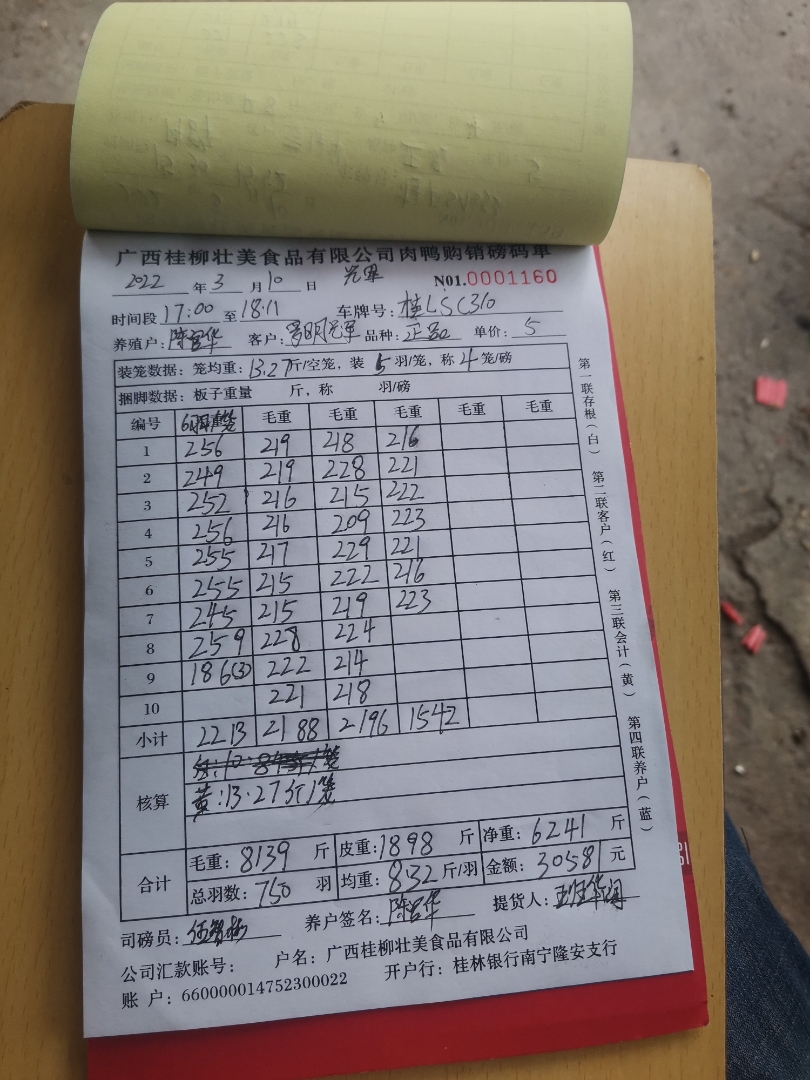 广西桂柳壮美食品有限公司肉鸭购销磅码单
2022 年 3 月 10 日 光军 N01.0001160
时间段 17:00 至 18:11 车牌号: 桂LSC310
养殖户: 陈宫华 客户: 明光军 品种: 正品 单价: 5
装笼数据: 笼均重: 13.27斤/空笼, 装 5 羽/笼, 称 4 笼/磅
捆脚数据: 板子重量 斤, 称 羽/磅
编号 毛重 毛重 毛重 毛重 毛重
1 256 219 218 216
2 249 219 228 221
3 252 216 215 222
4 256 216 209 223
5 255 217 229 221
6 255 215 222 216
7 245 215 219 223
8 259 228 224
9 186(3) 222 214
10 221 218
小计 2213 2188 2196 1542
核算
黄:13.27斤/笼
合计 毛重: 8139 斤 皮重: 1898 斤 净重: 6241 斤
总羽数: 750 羽 均重: 8.32 斤/羽 金额: 30581 元
司磅员: 养户签名: 陈宫华 提货人:
公司汇款账号: 户名: 广西桂柳壮美食品有限公司
账 户: 660000014752300022 开户行: 桂林银行南宁隆安支行
第一联存根(白) 第二联客户(红) 第三联会计(黄) 第四联养户(蓝)